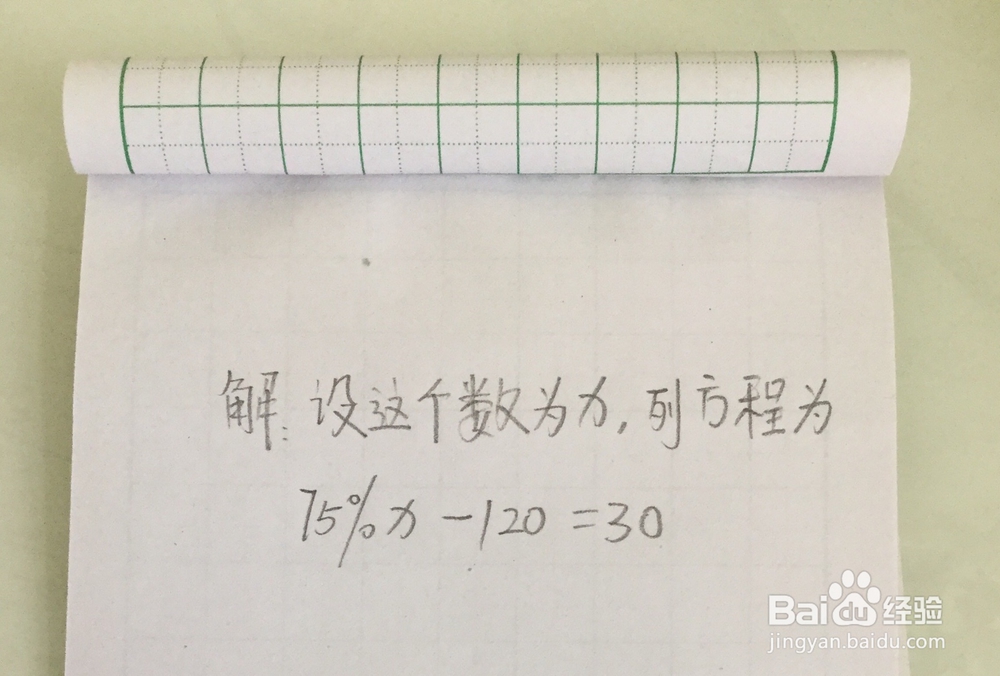 解: 设这个数为x, 列方程为
75%x -120 =30
Baidu经验
jingyan.baidu.com